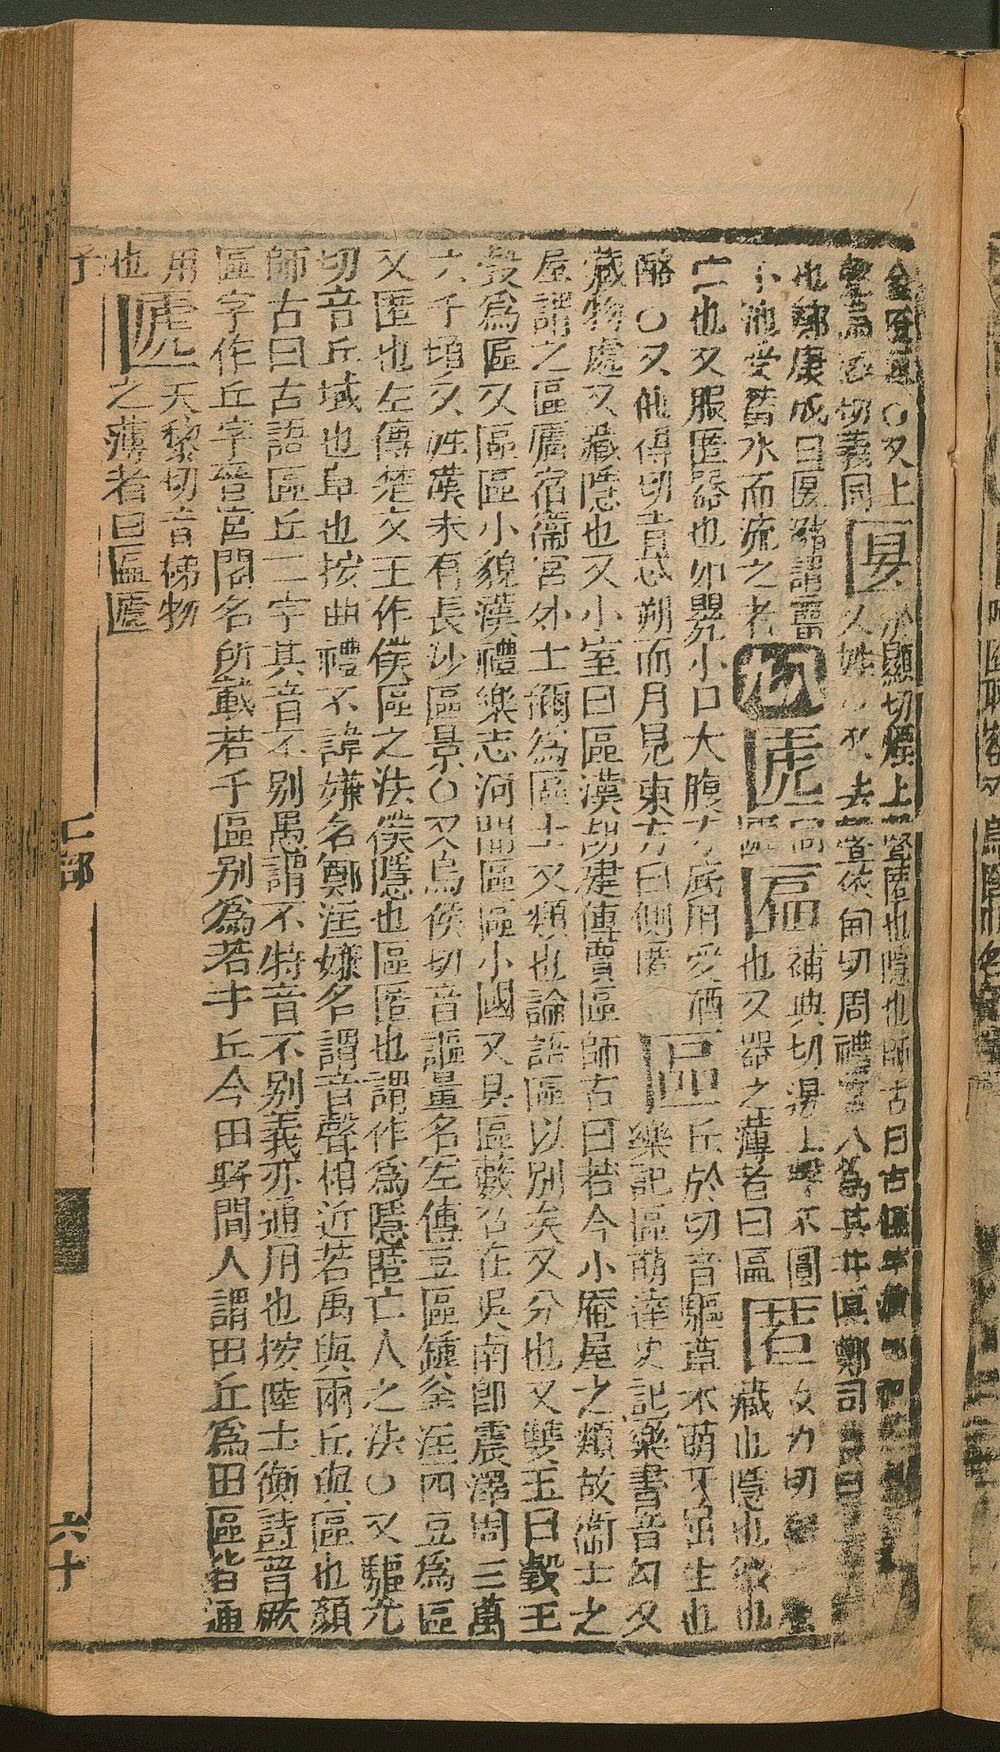 ○又上 匽 小顯切煙上聲匿也隱也師古曰古偃字
切義同 又姓○又去聲依甸切周禮宮人為其井匽鄭司農曰
也鄭康成曰匽豬謂霤 㔸 匾 補典切邊上聲不圓 匿 女力切
下池受畜水而流之者 㔸也又器之薄者曰匾 藏也隱也微也
亡也又服匿器也如罌小口大腹方底用受酒 區 丘於切音驅草木萌芽屈生也
酪○又他得切音忒朔而月見東方曰側匿 樂記區萌達史記樂書音勾又
藏物處又藏隱也又小室曰區漢胡建傳賈區師古曰若今小庵屋之類故衛士之
屋謂之區廬宿衛宮外士稱為區士又類也論語區以別矣又分也又雙玉曰瑴王
瑴為區又區區小貌漢禮樂志河間區區小國又具區藪名在吳南即震澤周三萬
六千頃又姓漢末有長沙區景○又烏侯切音謳量名左傳豆區鍾釜注四豆為區
又匿也左傳楚文王作僕區之法僕隱也區匿也謂作為隱匿亡人之法○又驅尤
切音丘域也阜也按曲禮不諱嫌名鄭注嫌名謂音聲相近若禹與雨丘與區也顏
師古曰古語區丘二字其音不別愚謂不特音不別義亦通用也按陸士衡詩普厥
區字作丘字晉宮閣名所載若干區別為若干丘今田野間人謂田丘為田區皆通
用 㔸 天黎切音梯物
也 之薄者曰匾㔸
子 匸部 六十